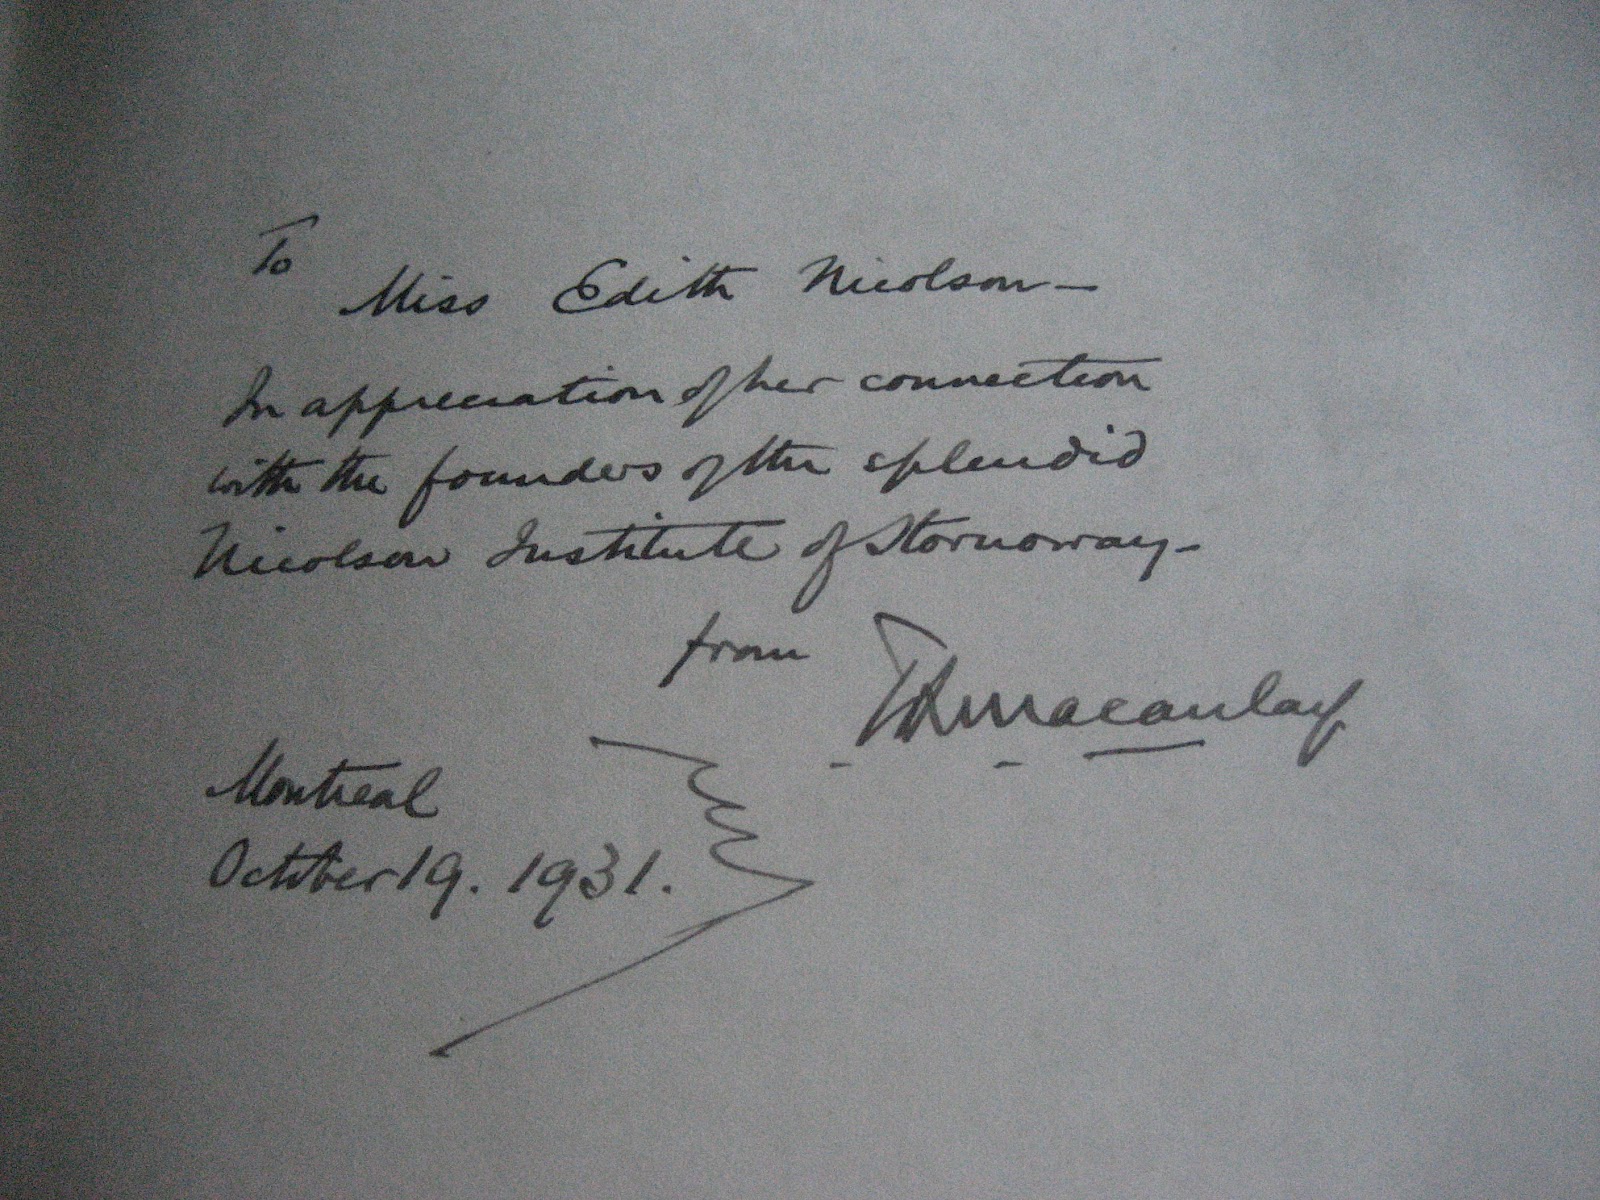 To
Miss Edith Nicolson—
In appreciation of her connection
with the founders of the splendid
Nicolson Institute of Stornoway—
from TBMacaulay
Montreal
October 19. 1931.